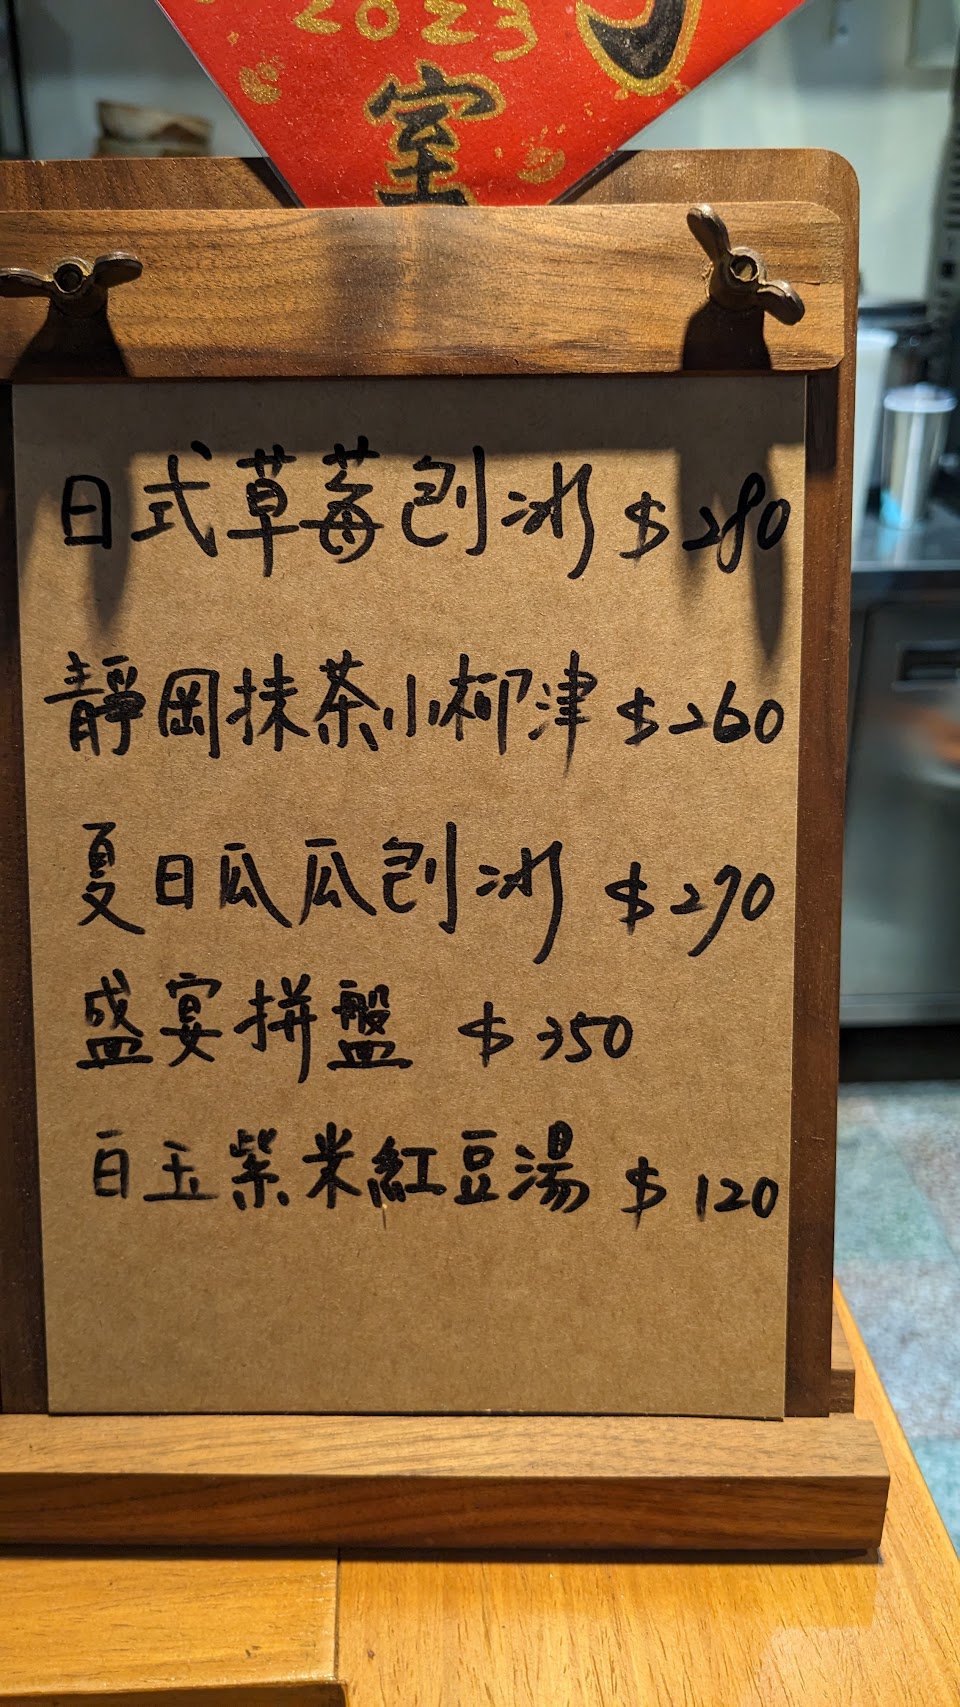 2023
室
日式草莓刨冰 $280
靜岡抹茶小柳津 $260
夏日瓜瓜刨冰 $270
盛宴拼盤 $350
白玉紫米紅豆湯 $120